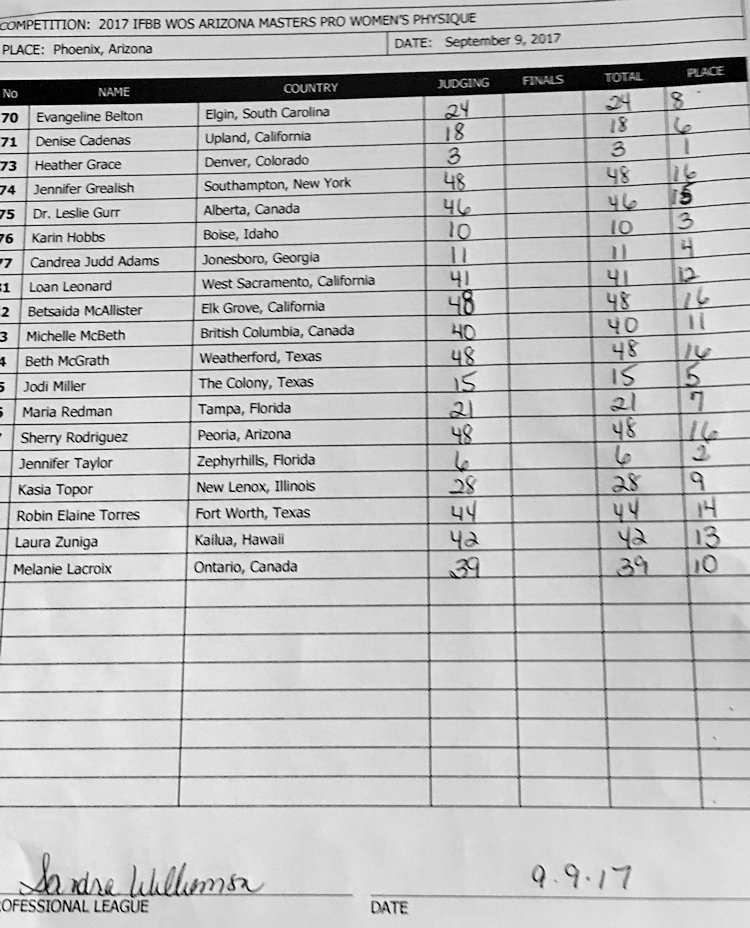 COMPETITION: 2017 IFBB WOS ARIZONA MASTERS PRO WOMEN'S PHYSIQUE
PLACE: Phoenix, Arizona DATE: September 9, 2017
No NAME COUNTRY JUDGING FINALS TOTAL PLACE
70 Evangeline Belton Elgin, South Carolina 24 24 8
71 Denise Cadenas Upland, California 18 18 6
73 Heather Grace Denver, Colorado 3 3 1
74 Jennifer Grealish Southampton, New York 48 48 16
75 Dr. Leslie Gurr Alberta, Canada 46 46 15
76 Karin Hobbs Boise, Idaho 10 10 3
77 Candrea Judd Adams Jonesboro, Georgia 11 11 4
1 Loan Leonard West Sacramento, California 41 41 12
2 Betsaida McAllister Elk Grove, California 48 48 16
3 Michelle McBeth British Columbia, Canada 40 40 11
4 Beth McGrath Weatherford, Texas 48 48 16
5 Jodi Miller The Colony, Texas 15 15 5
Maria Redman Tampa, Florida 21 21 7
Sherry Rodriguez Peoria, Arizona 48 48 16
Jennifer Taylor Zephyrhills, Florida 6 6 2
Kasia Topor New Lenox, Illinois 28 28 9
Robin Elaine Torres Fort Worth, Texas 44 44 14
Laura Zuniga Kailua, Hawaii 42 42 13
Melanie Lacroix Ontario, Canada 39 39 10
Sandra Williamson 9.9.17
OFESSIONAL LEAGUE DATE